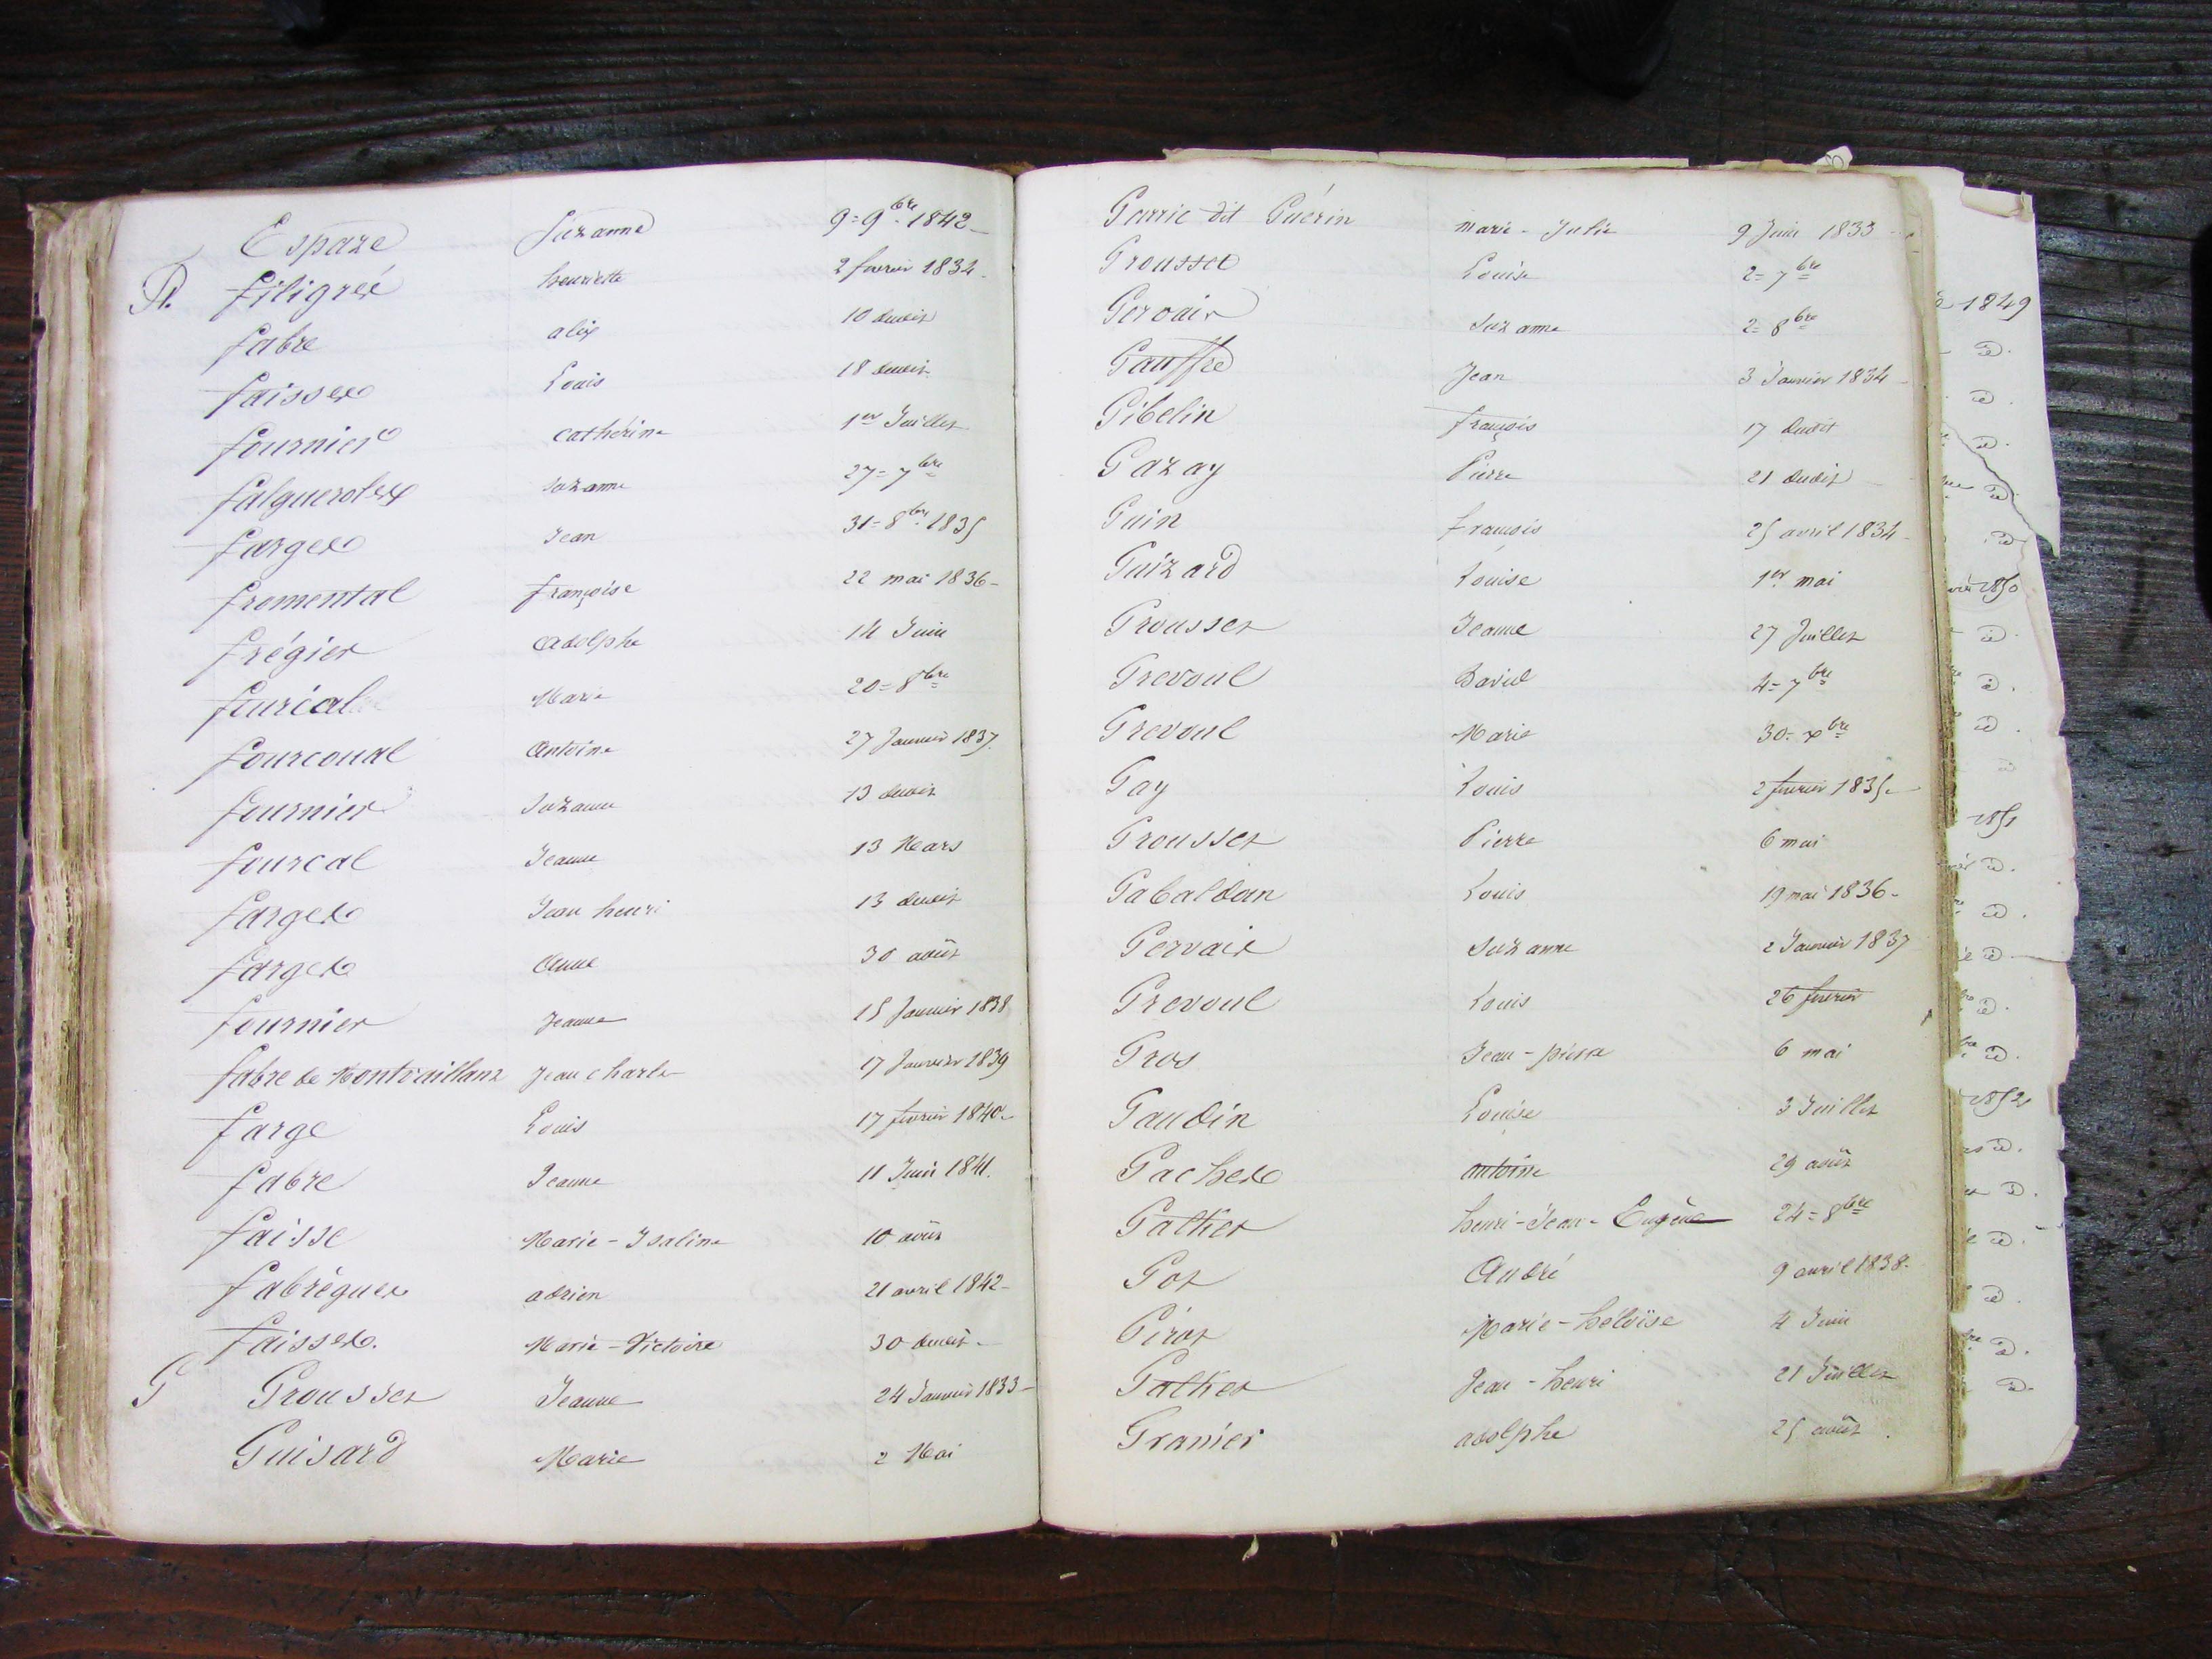 Espaze Suzanne 9= 9bre 1842
F. filigrée henriette 2 fevrier 1834
fabre alix 10 dudit
faisses Louis 18 dudit
fournier Catherine 1er Juillet
falguerolles suzanne 27= 7bre
farges Jean 31= 8bre 1835
fromental françoise 22 mai 1836
frégier adolphe 14 Juin
fourcal Marie 20= 8bre
fourcoual Antoine 27 Janvier 1837
fournier Suzanne 13 dudit
fourcal Jeanne 13 Mars
farges Jean henri 13 dudit
farges Anne 30 août
fournier Jeanne 15 Janvier 1838
fabre de Montvaillant Jean charles 17 Janvier 1839
farge Louis 17 fevrier 1840
fabre Jeanne 11 Juin 1841
faisse Marie-Isaline 10 août
fabrègues adrien 21 avril 1842
faisses. Marie-Victoire 30 dudit
G Grousset Jeanne 24 Janvier 1833
Guisard Marie 2 Mai
Garric dit Guérin Marie-Julie 9 Juin 1833
Grousset Louise 2= 7bre
Gervais Suzanne 2= 8bre
Gauffre Jean 3 Janvier 1834
Gibelin françois 17 dudit
Gazay Pierre 21 dudit
Guin françois 25 avril 1834
Guizard Louise 1er mai
Grousset Jeanne 27 Juillet
Grevoul David 4= 7bre
Grevoul Marie 30= xbre
Gay Louis 2 fevrier 1835
Grousset Pierre 6 mai
Gabaldan Louis 19 mai 1836
Gervais Suzanne 2 Janvier 1837
Grevoul Louis 26 fevrier
Gros Jean-pierre 6 mai
Gaudin Louise 3 Juillet
Gaches antoine 29 août
Galtier henri-Jean-Eugène 24= 8bre
Got André 9 avril 1838.
Girot Marie-héloïse 4 Juin
Galtier Jean-henri 21 Juillet
Granier adolphe 25 août
1849
1850
1851
1852